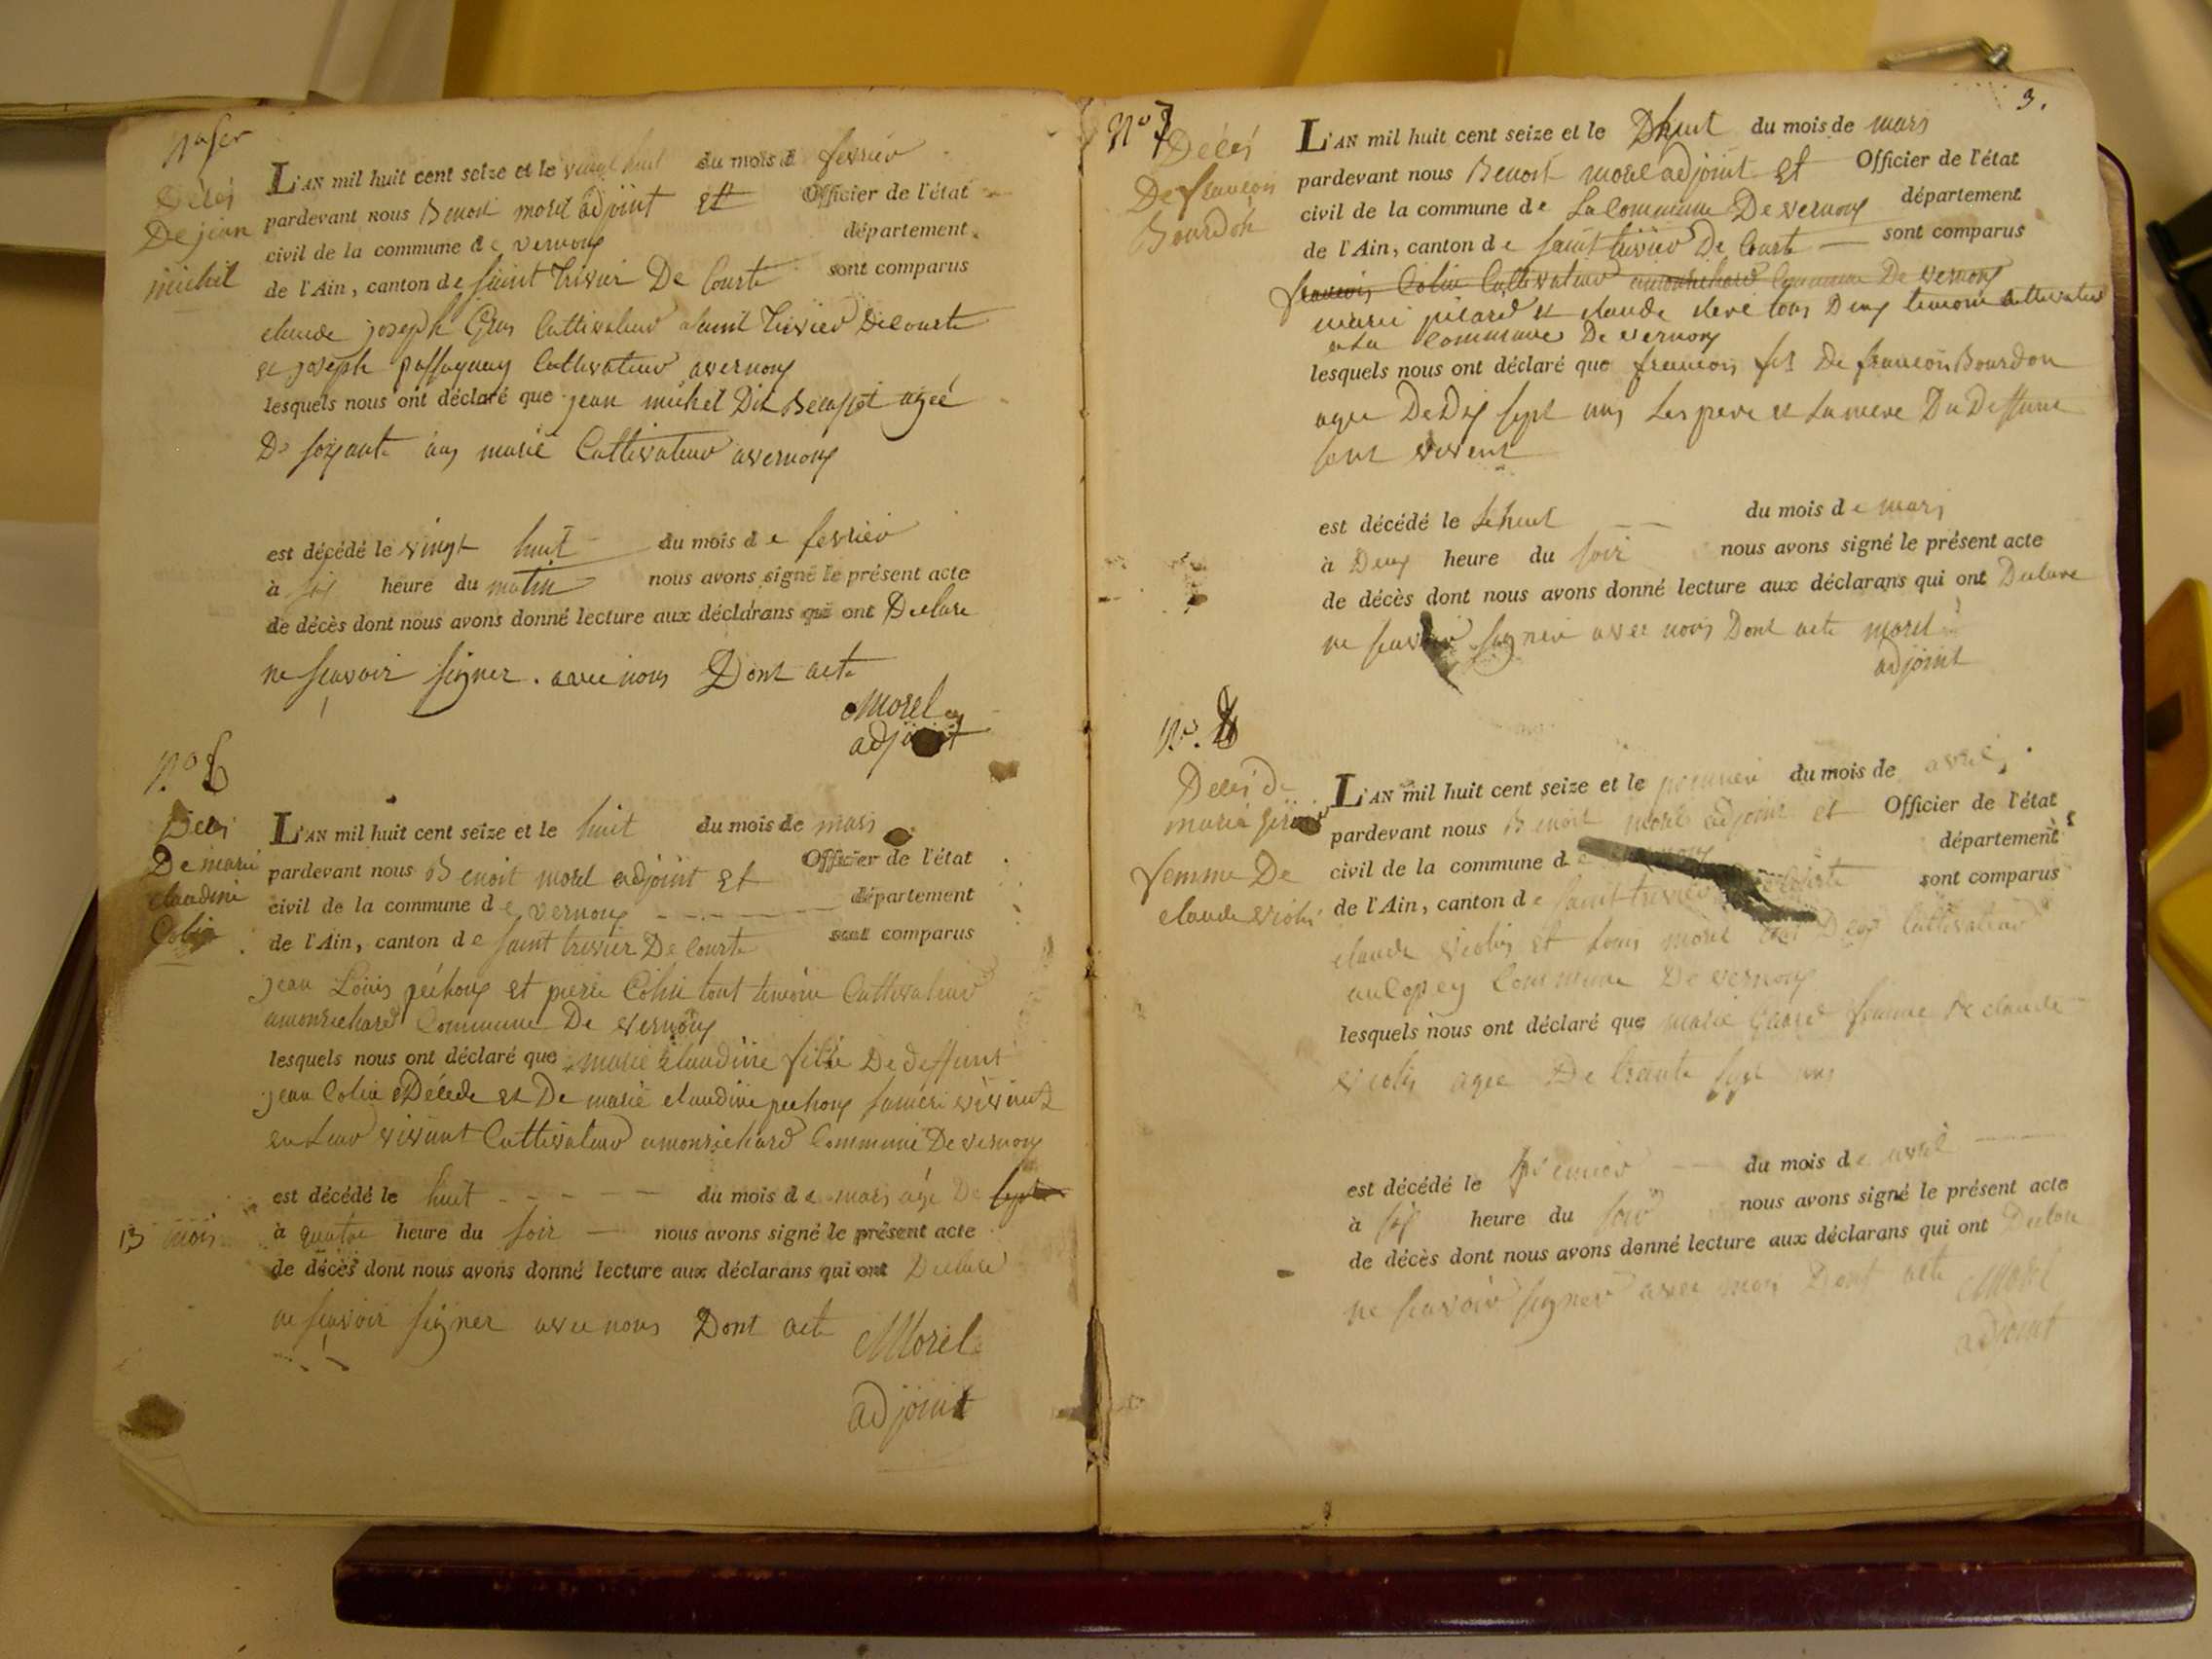 Décés
De jean
michel
L'AN mil huit cent seize et le vingt huit du mois d fevrier
pardevant nous Benoit morel adjoint et Officier de l'état
civil de la commune de vernoux département
de l'Ain, canton de saint trivier De Courte sont comparus
claude joseph Gras Cultivateur asaint trivier De courte
et joseph passaquay Cultivateur avernoux
lesquels nous ont déclaré que jean michel Dit agée
De soixante ans marié Cultivateur avernoux
est décédé le vingt huit du mois de fevrier
à six heure du matin nous avons signé le présent acte
de décès dont nous avons donné lecture aux déclarans qui ont Declare
ne scavoir signer. avec nous Dont acte
Morel
adjoint
N.o 6
Deces
De marie
claudine
Colin
L'AN mil huit cent seize et le huit du mois de mars
pardevant nous Benoit morel adjoint et Officier de l'état
civil de la commune de vernoux département
de l'Ain, canton de saint trivier De Courte sont comparus
jean Louis péchoux et pierre Colin tout temoin Cultivateur
amonrichard Commune De vernoux
lesquels nous ont déclaré que marie claudine fille De deffunt
jean Colin Décede et De marie claudine pechoux samere vivant
en Leur vivant Cultivateur amonrichard Commune De vernoux
est décédé le huit du mois de mars agé De sept
13 mois
à quatre heure du soir nous avons signé le présent acte
de décès dont nous avons donné lecture aux déclarans qui ont Declare
ne scavoir signer avec nous Dont acte Morel
adjoint
3.
N.o 7
Décés
De francois
Bourdon
L'AN mil huit cent seize et le huit du mois de mars
pardevant nous Benoit morel adjoint et Officier de l'état
civil de la commune de La Commune De vernoux département
de l'Ain, canton de saint trivier De Courte sont comparus
francois Colin Cultivateur amonrichard Commune De vernoux
marie picard et claude tous Deux temoin cultivateur
a La Commune De vernoux
lesquels nous ont déclaré que francois fils De francois Bourdon
agee De Dix sept ans Les pere et La mere Du Deffunt
sont vivent
est décédé le Le huit du mois de mars
à Deux heure du soir nous avons signé le présent acte
de décès dont nous avons donné lecture aux déclarans qui ont Declare
ne scavoir signer avec nous Dont acte morel
adjoint
N.o 8
Deces de
marie
femme De
claude violin
L'AN mil huit cent seize et le premier du mois de avril
pardevant nous Benoit morel adjoint et Officier de l'état
civil de la commune de département
de l'Ain, canton de saint trivier De Courte sont comparus
claude et Louis morel Deux Cultivateur
Commune De vernoux
lesquels nous ont déclaré que marie femme de claude
agee De trante sept ans
est décédé le premier du mois de avril
à six heure du soir nous avons signé le présent acte
de décès dont nous avons donné lecture aux déclarans qui ont Declare
ne scavoir signer avec nous Dont acte Morel
adjoint